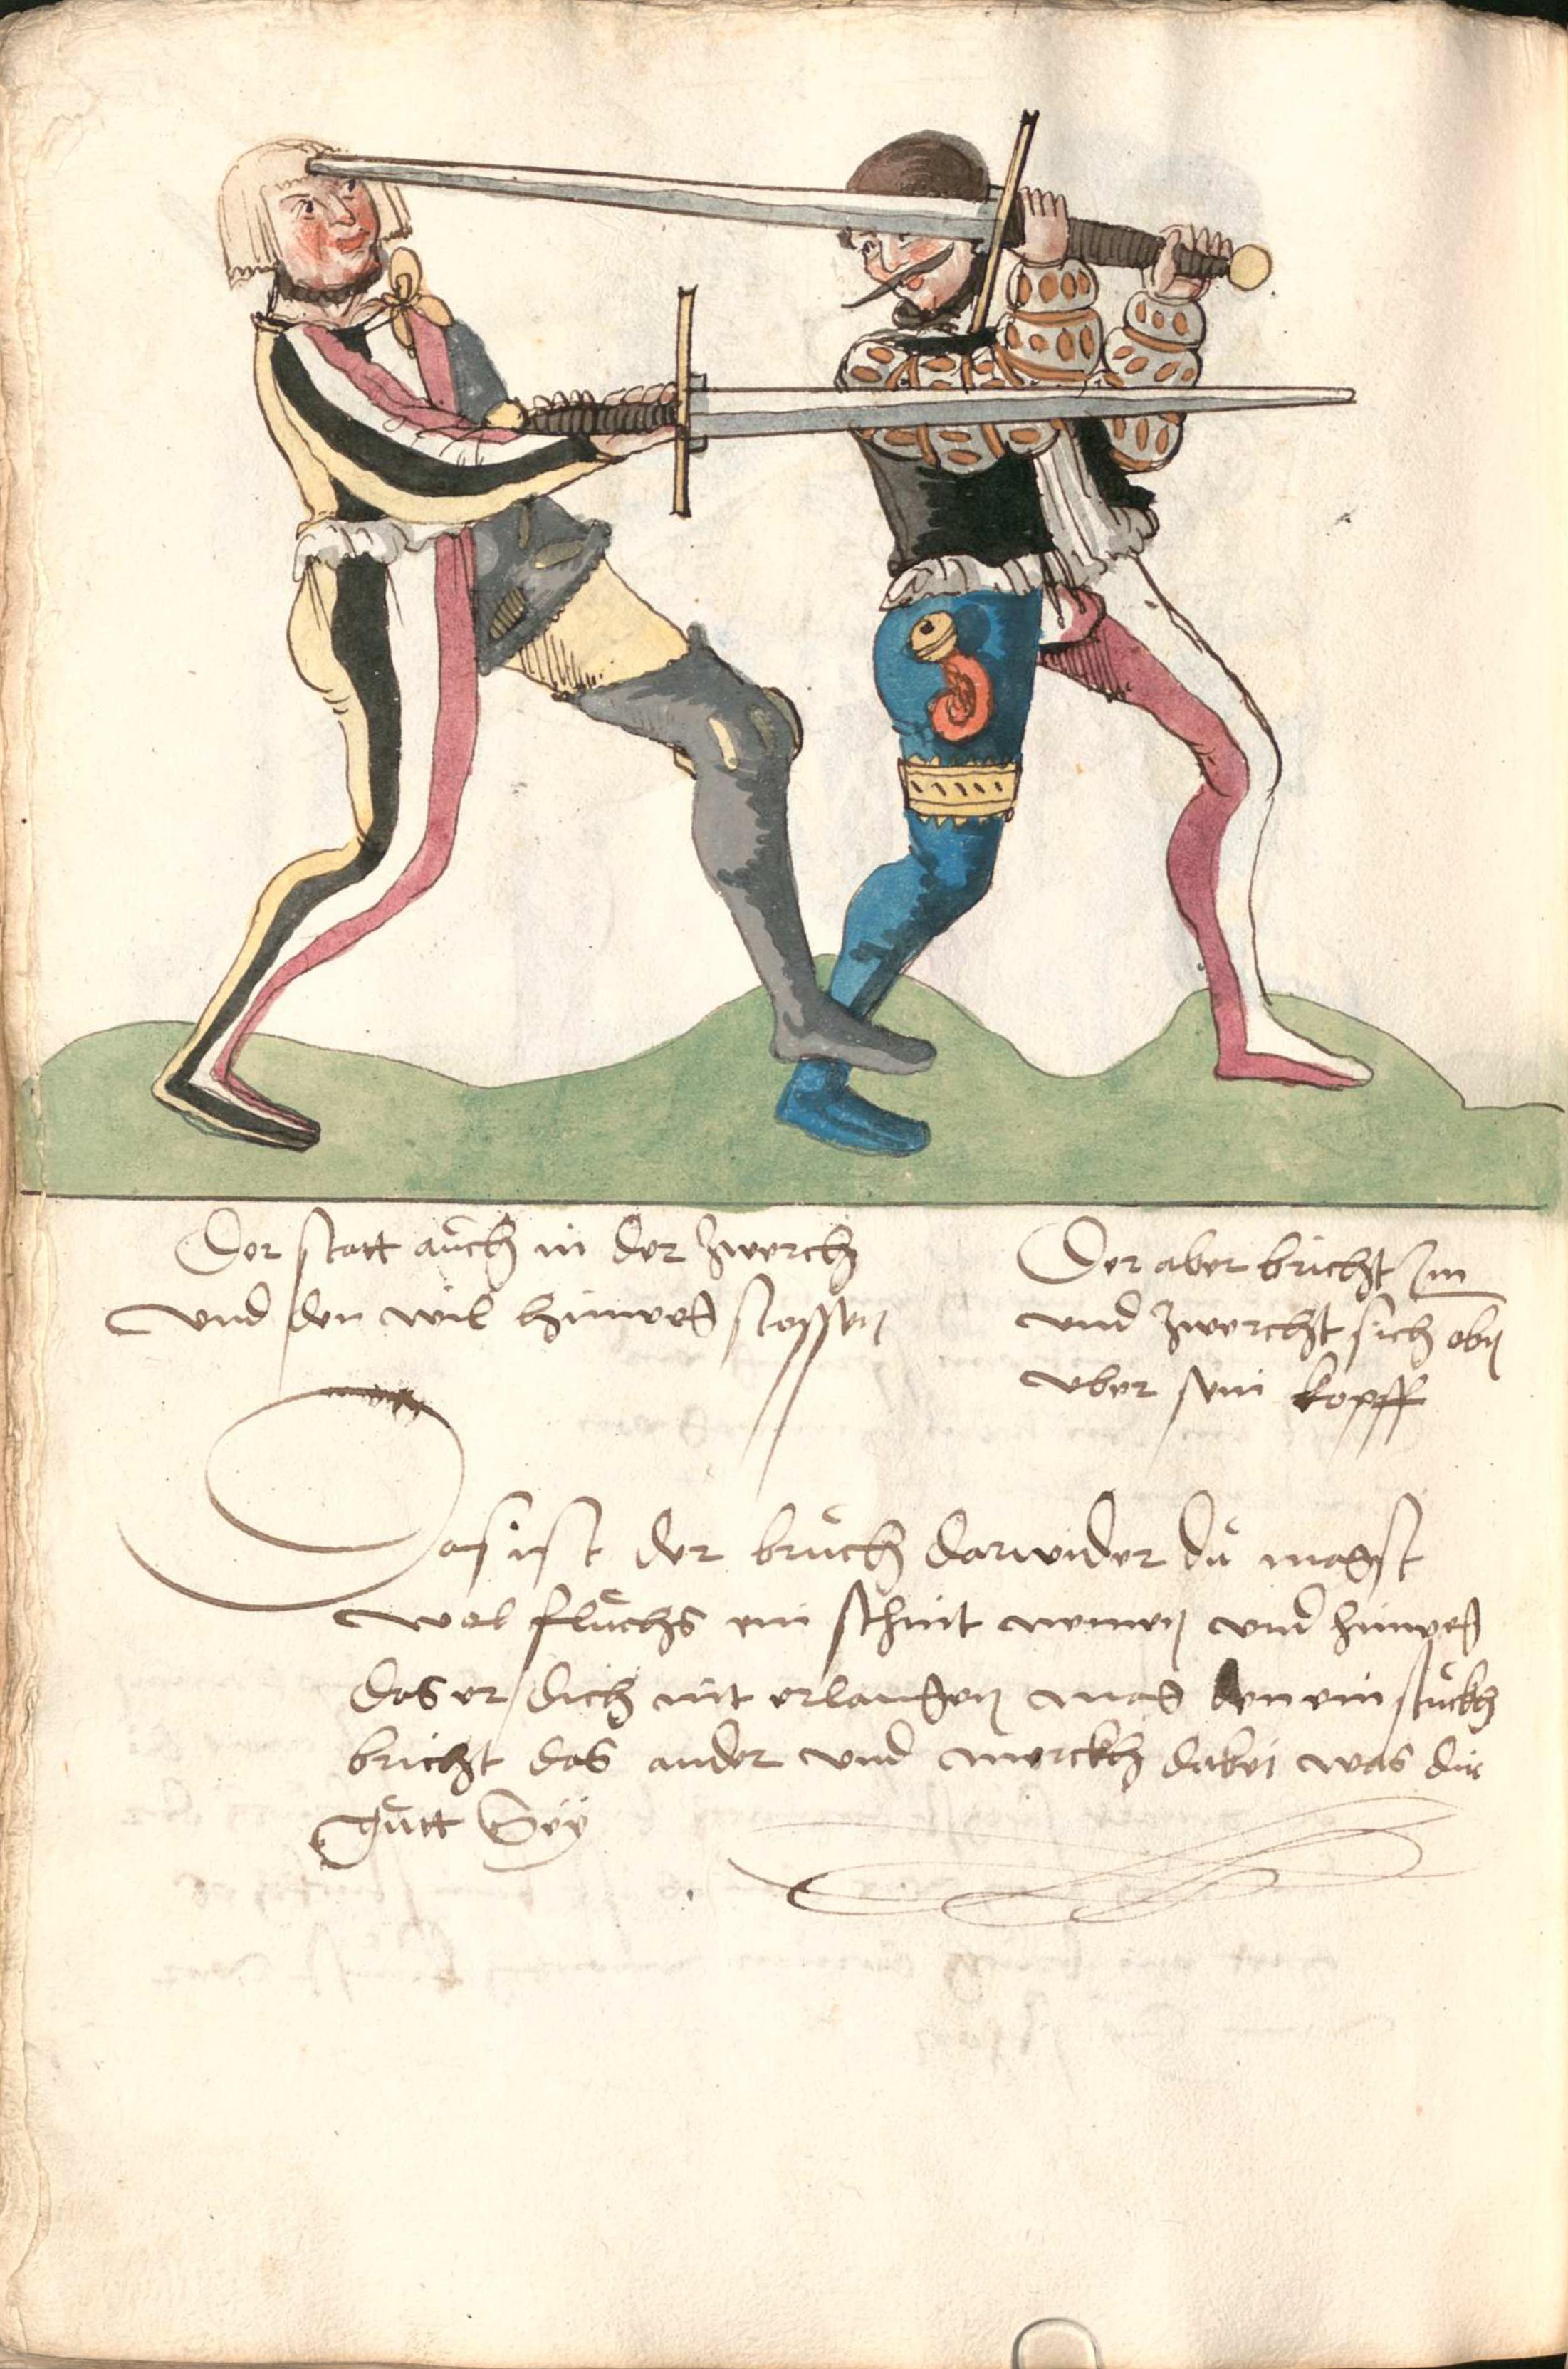 Der statt aůch in der zwerch
vnd den wil hinweg stossen
Der aber bricht Im
vnd zwercht sich obn
vber sein kopff
Das ist der brůch darwider dů magst
wol flůchs ein schnit nemen vnd hinweg
das er dich nit erlangen mag den ein stůckh
bricht das ander vnd merckh dabei was dir
gůtt Seÿ